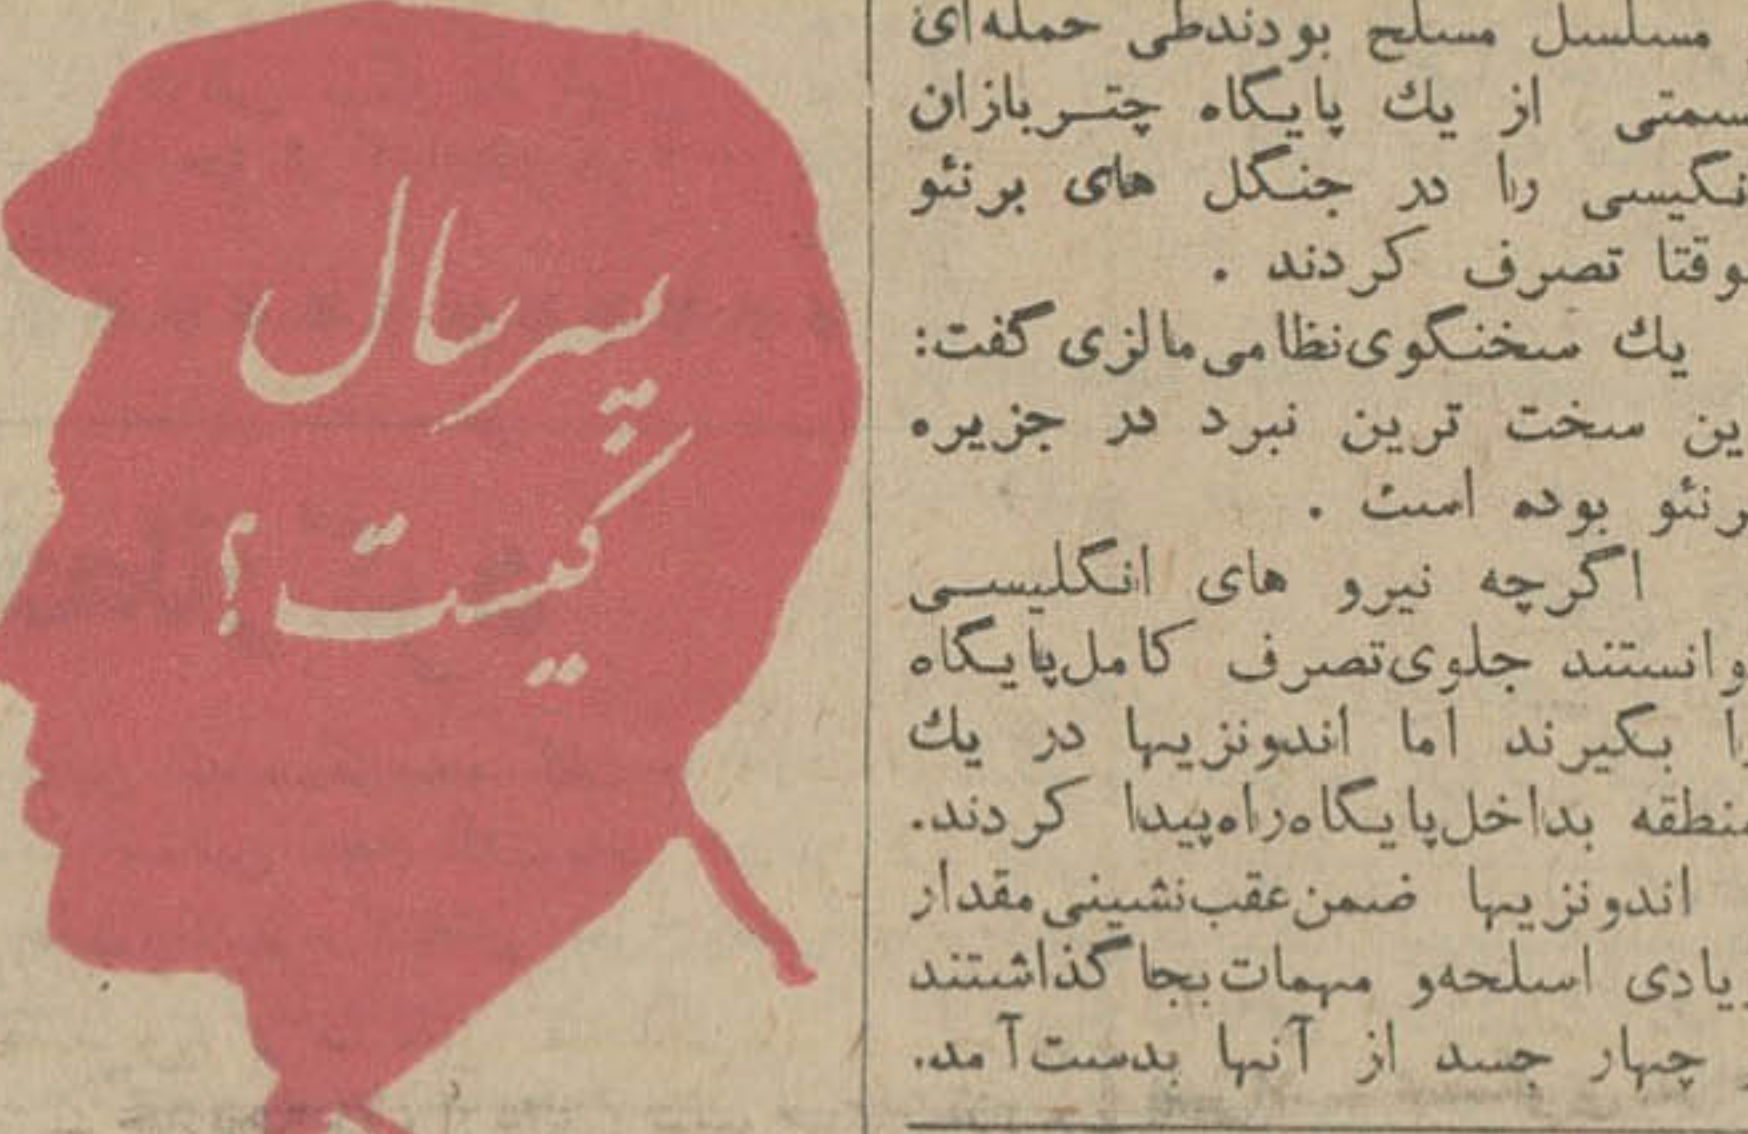 مسلسل مسلح بودندطی حمله‌ای
سمتی از یك پایگاه چتربازان
نگیسی را در جنگل های برنئو
وقتا تصرف کردند .
یك سخنگوی‌نظامی‌مالزی گفت:
ین سخت ترین نبرد در جزیره
رنئو بوده است .
اگرچه نیرو های انگلیسی
وانستند جلوی‌تصرف کامل‌پایگاه
را بگیرند اما اندونزیها در یك
منطقه بداخل‌پایگاه‌راه‌پیدا کردند.
اندونزیها ضمن‌عقب‌نشینی‌مقدار
یادی اسلحه‌و مهمات‌بجا گذاشتند
چهار جسد از آنها بدست‌آمد.
پسر سال
کیست؟